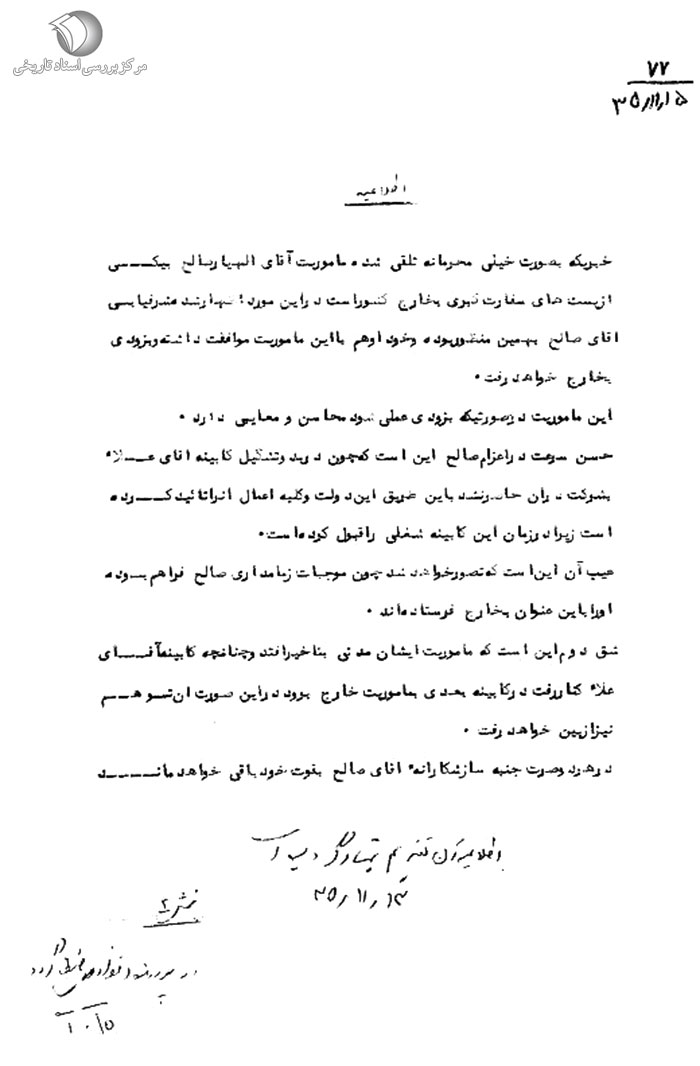 مرکز بررسی اسناد تاریخی
۷۷
۳۵/۱۱/۱۵
اطلاعیه
خبریکه بصورت خیلی محرمانه تلقی شده ماموریت آقای الهیار صالح بیکی
ازپست های سفارت کبری بخارج کشور است دراین مورد اظهار شد شرفیابی
اقای صالح بهمین منظور بوده و خود اوهم بااین ماموریت موافقت داشته وبزودی
بخارج خواهد رفت.
این ماموریت درصورتیکه بزودی عملی شود محاسن و معایبی دارد.
حسن سرعت دراعزام صالح این است که چون در بدو تشکیل کابینه اقای علاء
بشرکت درآن حاضر نشد باین طریق این دولت وکلیه اعمال انرا تائید کرده
است زیرا درزمان این کابینه شغلی راقبول کرده است.
عیب آن این است که تصور خواهد شد چون موجبات زمامداری صالح فراهم بوده
اورا باین عنوان بخارج فرستاده اند.
شق دوم این است که ماموریت ایشان مدتی بتاخیر افتد و چنانچه کابینه آقای
علاء کنار رفت درکابینه بعدی بماموریت خارج برود دراین صورت ان توهم
نیز ازبین خواهد رفت.
درهر دوصورت جنبه سازشکارانه اقای صالح بقوت خود باقی خواهد ماند
۳۵/۱۱/۱۳
بخش ۲